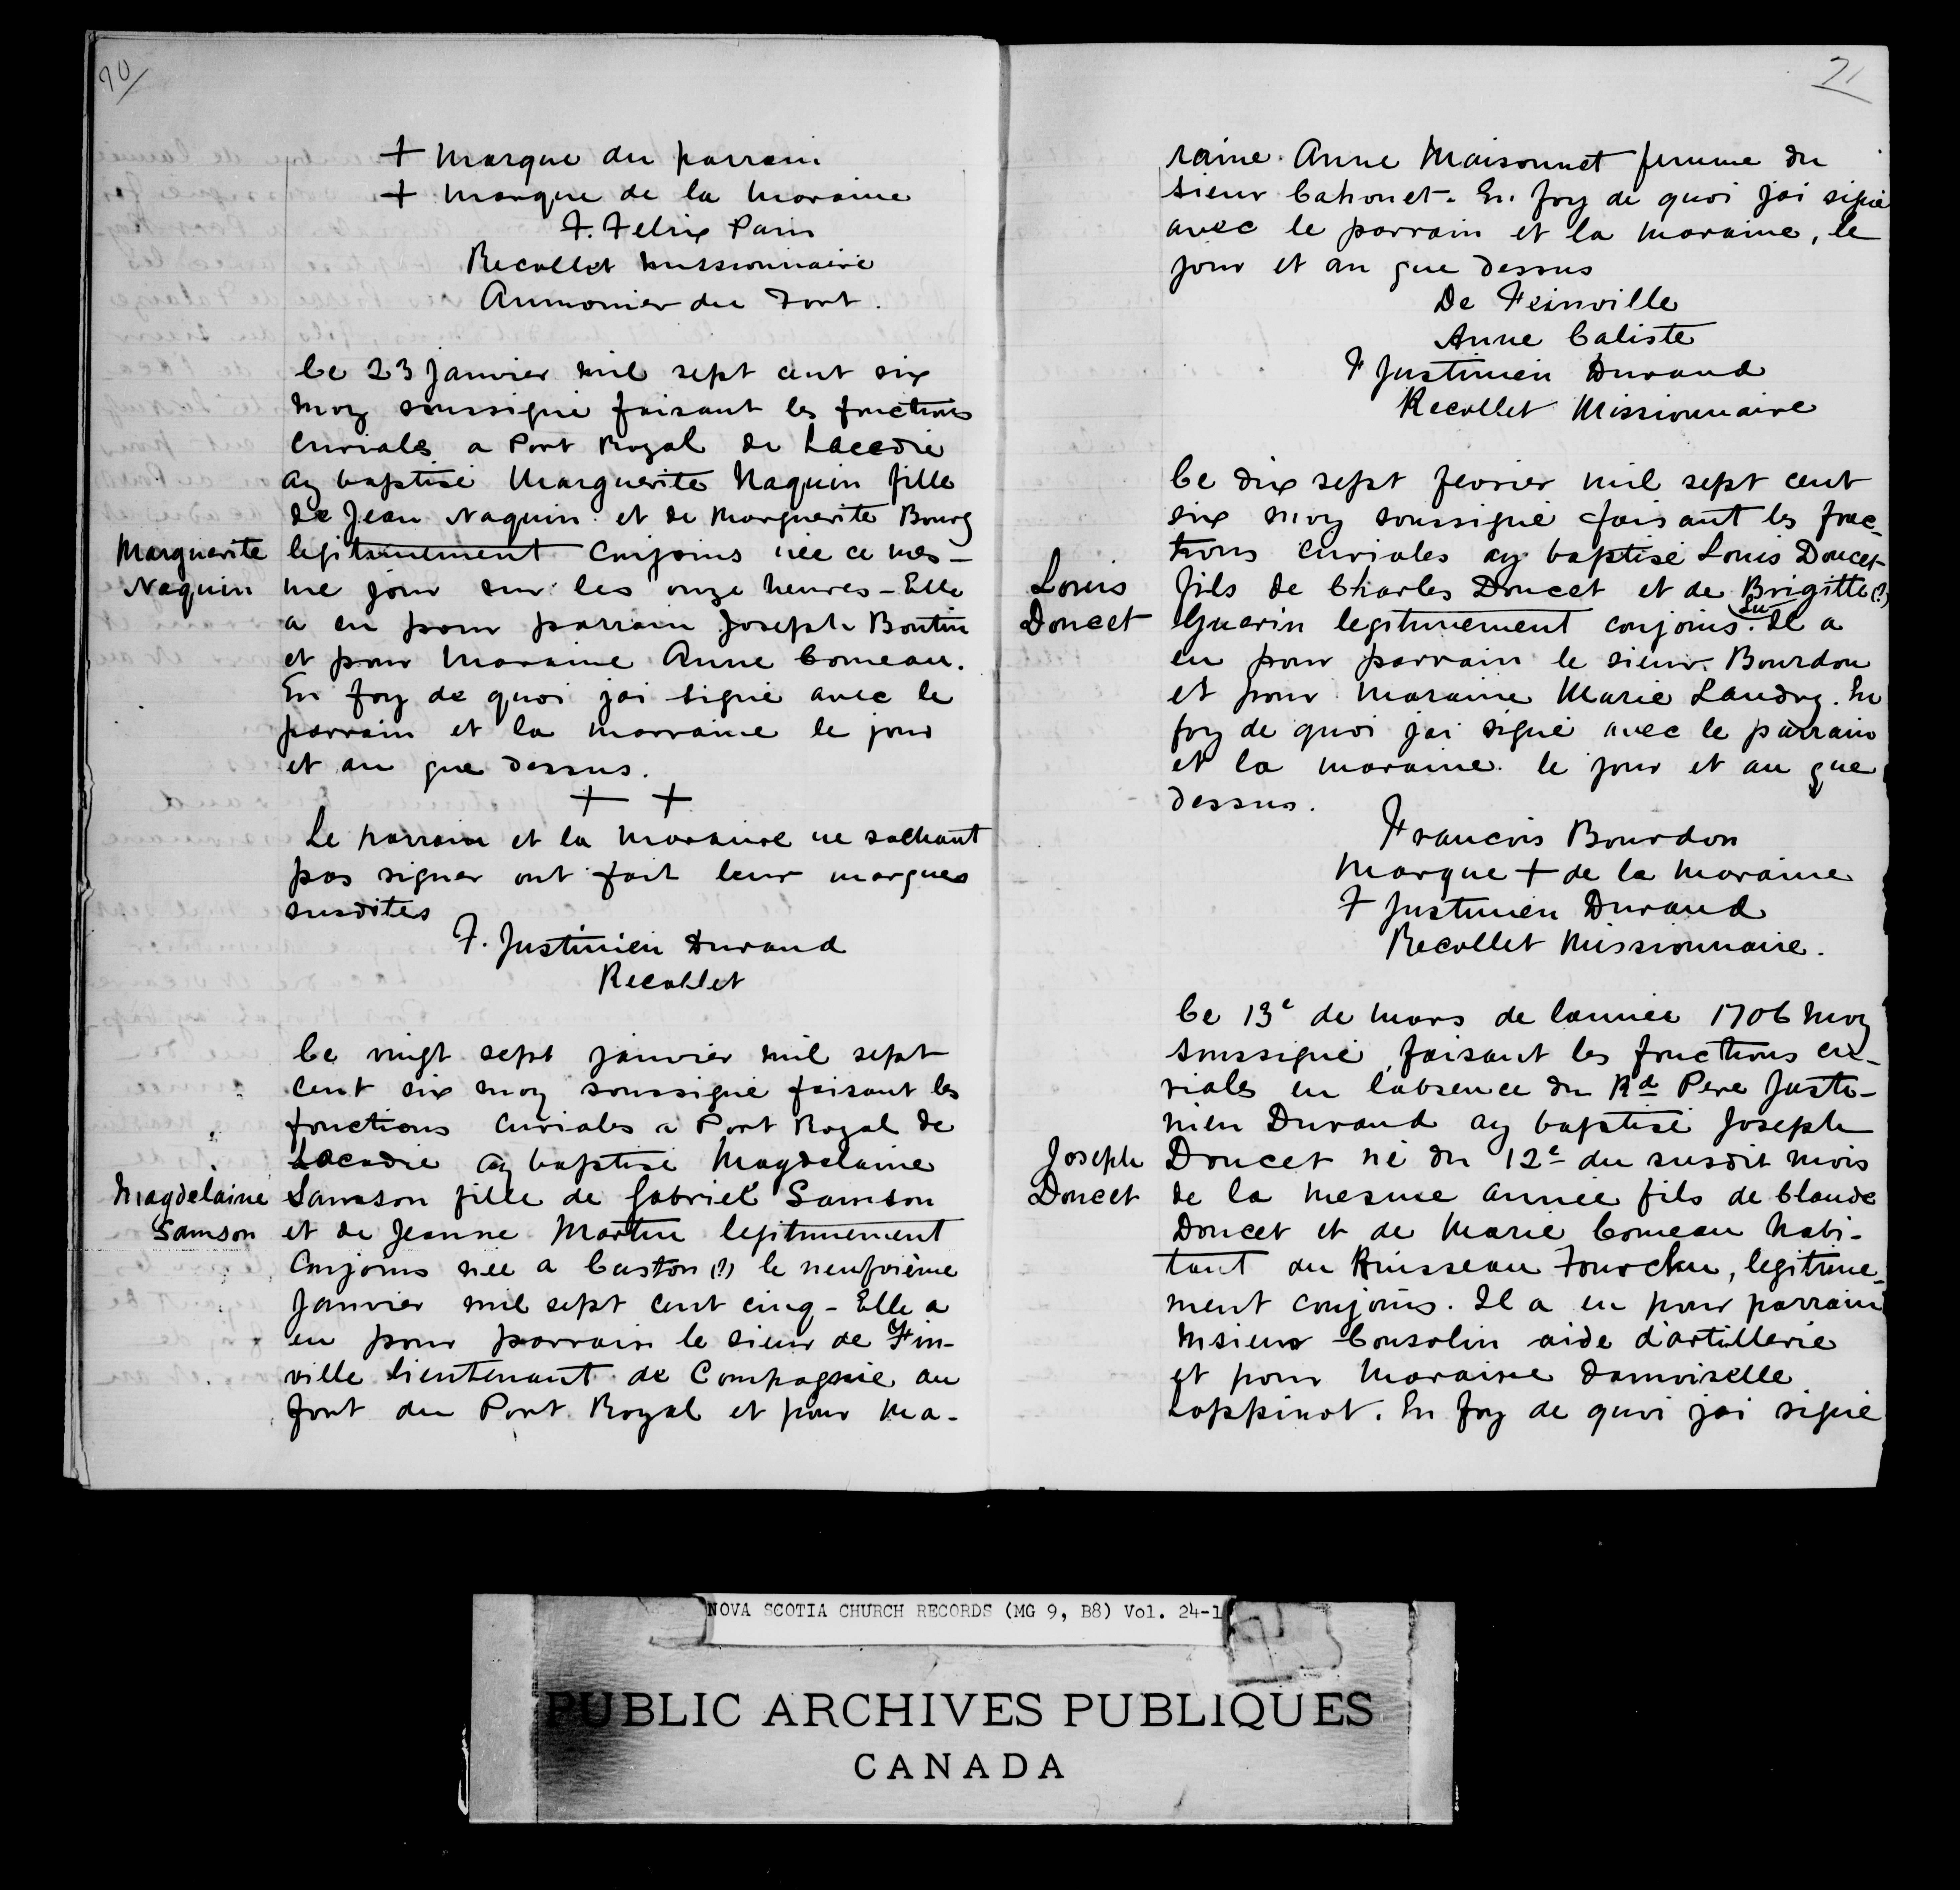 70/
+ Marque du parrain
+ Marque de la Moraine
F. Felix Pain
Recollet missionnaire
Aumonier du Fort.
Le 23 Janvier mil sept cent six
moy soussigné faisant les fonctions
curiales a Port Royal de Lacedie
ay baptisé Marguerite Naquin fille
de Jean Naquin et de Marguerite Bourg
Marguerite
Naquin
legitimement conjoins née ce mes-
me jour sur les onze heures - Elle
a eu pour parrain Joseph Boutin
et pour Maraine Anne Comeau.
En foy de quoi jai signé avec le
parrain et la marraine le jour
et an que dessus.
+ +
Le parrain et la Moraine ne sachant
pas signer ont fait leur marques
susdites
F. Justinien Durand
Recollet
Le vingt sept janvier mil sept
cent six moy soussigné faisant les
fonctions curiales a Port Royal de
Lacadie ay baptisé Magdelaine
Magdelaine
Samson
Samson fille de Gabriel Samson
et de Jeanne Martin legitimement
Conjoins née a Caston (?) le neufvième
Janvier mil sept cent cinq - Elle a
eu pour parrain le sieur de Fin-
ville lieutenant de Compagnie au
fort du Port Royal et pour Ma-
71
raine Anne Maisonnet femme du
sieur Cahouet - En foy de quoi jai signé
avec le parrain et la Maraine, le
jour et an que dessus
De Feinville
Anne Caliste
F Justinien Durand
Recollet Missionnaire
Le dix sept fevrier mil sept cent
six moy soussigné faisant les fonc-
tions curiales ay baptisé Louis Doucet
Louis
Doucet
fils de Charles Doucet et de Brigitte (?)
Guerin legitimement conjoins. Il a
eu pour parrain le sieur Bourdon
et pour Maraine Marie Landry. En
foy de quoi jai signé avec le parrain
et la maraine le jour et an que
dessus.
Francois Bourdon
Marque + de la Maraine
F Justinien Durand
Recollet Missionnaire.
Le 13e de Mars de lannée 1706 Moy
soussigné faisant les fonctions cu-
riales en labsence du Rd Pere Justi-
nien Durand ay baptisé Joseph
Joseph
Doucet
Doucet né du 12e du susdit mois
de la mesme année fils de Claude
Doucet et de Marie Comeau habi-
tant au Ruisseau Fourchu, legitime-
ment conjoins. Il a eu pour parrain
Msieur Consolin aide d'artillerie
et pour Maraine damoiselle
Loppinot. En foy de quoi jai signé
NOVA SCOTIA CHURCH RECORDS (MG 9, B8) Vol. 24-1
PUBLIC ARCHIVES PUBLIQUES
CANADA